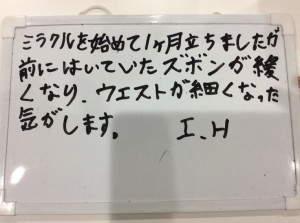 ミラクルを始めて1ヶ月立ちましたが
前にはいていたズボンが緩
くなり、ウエストが細くなった
気がします。 I.H